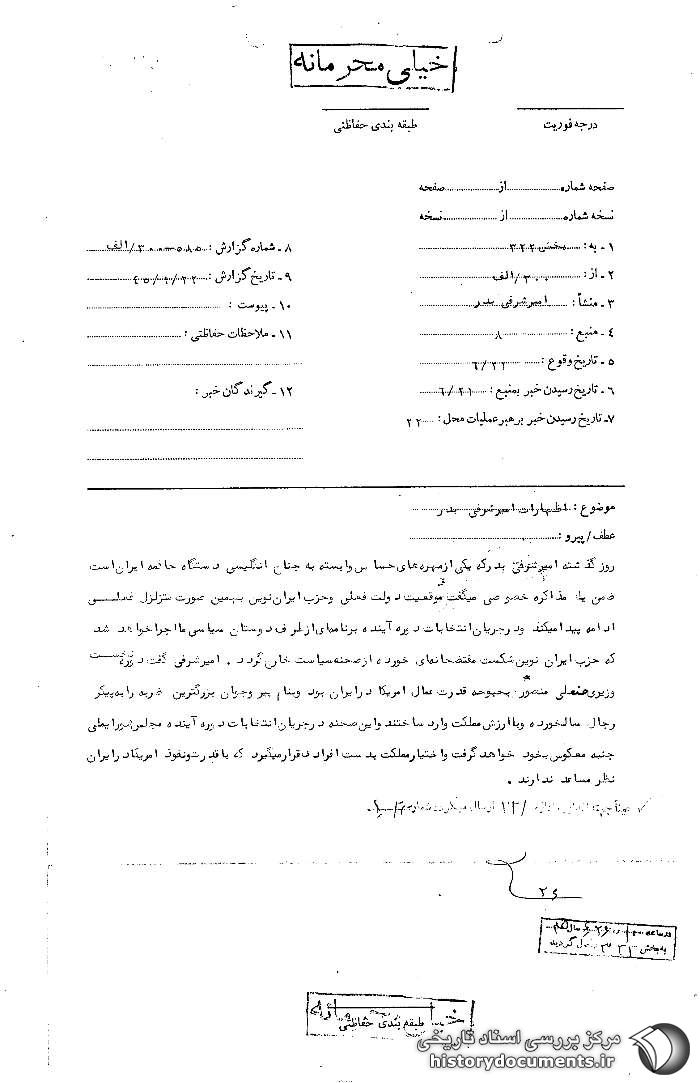 خیلی محرمانه
درجه فوریت
طبقه بندی حفاظتی
صفحه شماره از صفحه
نسخه شماره از نسخه
۱ - به : بخش ۳۲۲
۲ - از : ۳۰۰/الف
۳ - منشأ : امیرشرفی بدر
۴ - منبع : ۸
۵ - تاریخ وقوع :
۶ - تاریخ رسیدن خبر بمنبع :
۷ - تاریخ رسیدن خبر برهبر عملیات محل : ۲۲
۸ - شماره گزارش : ۳۰۰۰۵۸۵/الف
۹ - تاریخ گزارش :
۱۰ - پیوست :
۱۱ - ملاحظات حفاظتی :
۱۲ - گیرندگان خبر :
موضوع : اظهارات امیرشرفی بدر
عطف/پیرو :
روز گذشته امیرشرفی بدر که یکی از مهره های حساس وابسته به جناح انگلیسی دستگاه حاکمه ایران است
ضمن یک مذاکره خصوصی میگفت موقعیت دولت فعلی وحزب ایران نوین بهمین صورت متزلزل فعلی
ادامه پیدا میکند و در جریان انتخابات دوره آینده برنامه ای از طرف دوستان سیاسی ما اجرا خواهد شد
که حزب ایران نوین شکست مفتضحانه ای خورده از صحنه سیاست خارج گردد . امیرشرفی گفت دوره نخست
وزیری حسنعلی منصور بحبوحه قدرت عمال امریکا در ایران بود وبنام پیر وجوان بزرگترین ضربه را به پیکر
رجال سالخورده وباارزش مملکت وارد ساختند واین صحنه در جریان انتخابات دوره آینده مجلس شورایملی
جنبه معکوس بخود خواهد گرفت واختیار مملکت بدست افرادی قرار میگیرد که با قدرت ونفوذ امریکا در ایران
نظر مساعد ندارند .
۲۶
در ساعه سال
به بخش گردید
طبقه بندی حفاظتی
مرکز بررسی اسناد تاریخی
historydocuments.ir